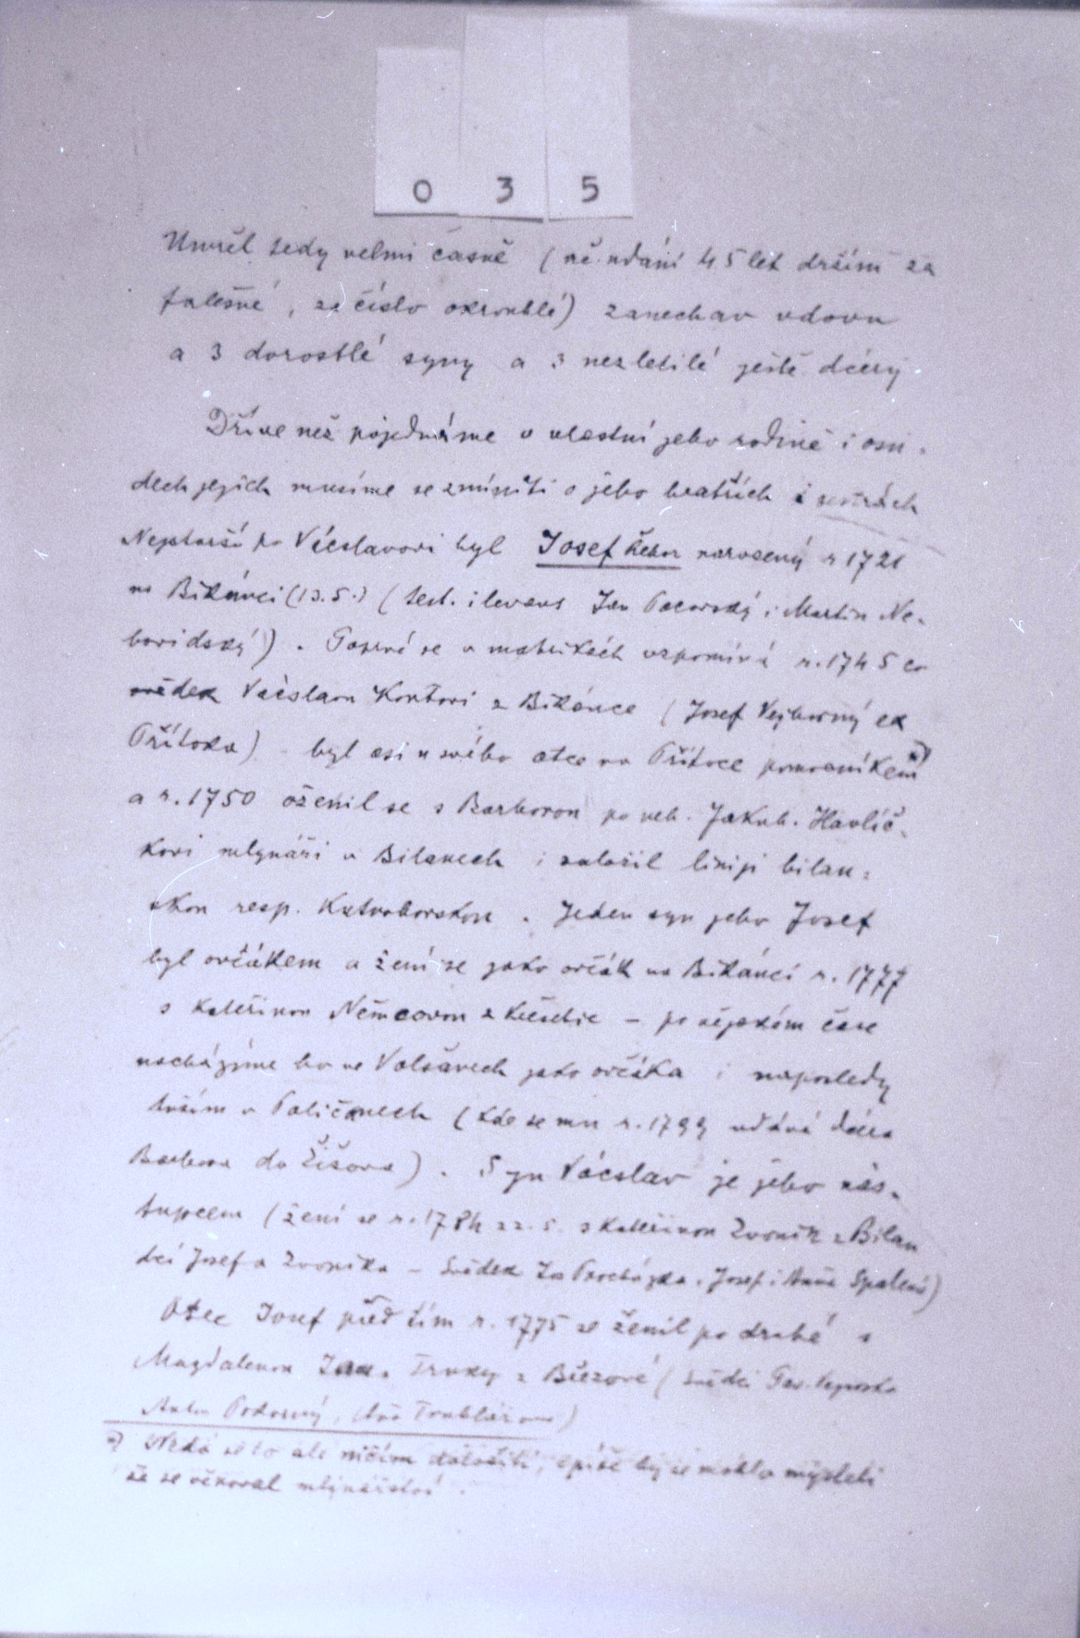 0 3 5
Umřel tedy velmi časně ( udání 45 let držím za
falešné, za číslo okrouhlé) zanechav vdovu
a 3 dorostlé syny a 3 nezletilé ještě dcery.
Dříve než pojednáme o vlastní jeho rodině i osu-
dech jejich musíme se zmíniti o jeho bratřích i sestrách
Nejstarší po Václavovi byl Josef narozený r 1721
na Bikánci (13.5.) (test. i levans Jan i Martin Ne-
). Poprvé se v matrikách vzpomíná r. 1745 co
svědek Václavu z Bikánce (Josef Vejborný ex
Přítoka) - byl asi u svého otce na Přítoce pomocníkem *)
a r. 1750 oženil se s Barborou po neb. Jakub. Havlíč-
kovi mlynáři v Bilanech i založil linii bilan-
skou resp. Kutnohorskou. Jeden syn jeho Josef
byl ovčákem a žení se jako ovčák na Bikánci r. 1777
s Kateřinou Němcovou z - po nějakém čase
nacházíme ho ve Volšanech jako ovčáka i naposledy
tuším v Poličanech (kde se mu r. 1799 udává dcera
Barbora do Čišova). Syn Václav je jeho nás-
tupcem (žení se r. 1784 22.5. s Kateřinou Zvoník z Bilan
dcí Josefa Zvoníka - Svědek Procházka, Josef i Anna Spalení)
Otec Josef před tím r. 1775 se ženil po druhé s
Magdalenou Jana Trnky z Březové (svědci
Pokorný, )
*) Nedá se to ale ničím doložiti, spíše by se mohlo mysleti
že se věnoval mlynářství.